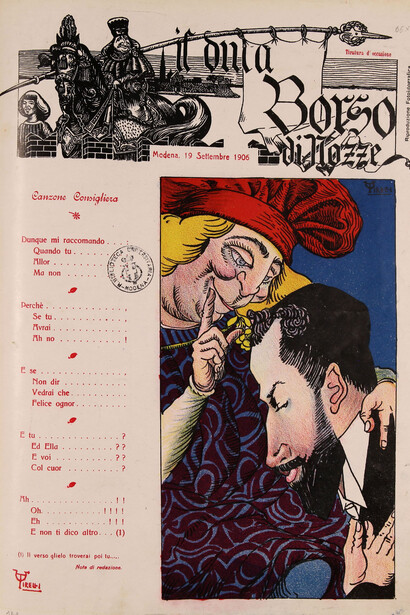 Tiratura d'occasione
il duca
Borso
di Nozze
Modena, 19 Settembre 1906
Canzone Consigliera
Dunque mi raccomando . . . .
Quando tu . . . . . . .
Allor . . . . . . . . .
Ma non . . . . . . . .
Perchè . . . . . . . . . . .
Se tu . . . . . . . . .
Avrai . . . . . . . . .
Ah no . . . . . . . . !
E se . . . . . . . . . . . .
Non dir . . . . . . . .
Vedrai che . . . . . . .
Felice ognor . . . . . . .
E tu . . . . . . . . . . . ?
Ed Ella . . . . . . . ? ?
E voi . . . . . . . . ? ?
Col cuor . . . . . . . .
Ah . . . . . . . . . . . ! !
Oh. . . . . . . . ! ! ! !
Eh . . . . . . . . ! ! !
E non ti dico altro. . . (1)
(1) Il verso glielo troverai poi tu....
Nota di redazione.